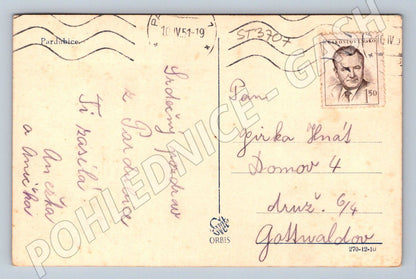 Pardubice.
10.IV.51-19
ST3707
ČESKOSLOVENSKO
1.50
Srdečný pozdrav
z Pardubic
Ti zasílá
Anežka
a Anička
Pan
Jirka Hnát
Domov 4
druž. 6/4
Gottwaldov
ORBIS
279-12-10
POHLEDNICE - GACH